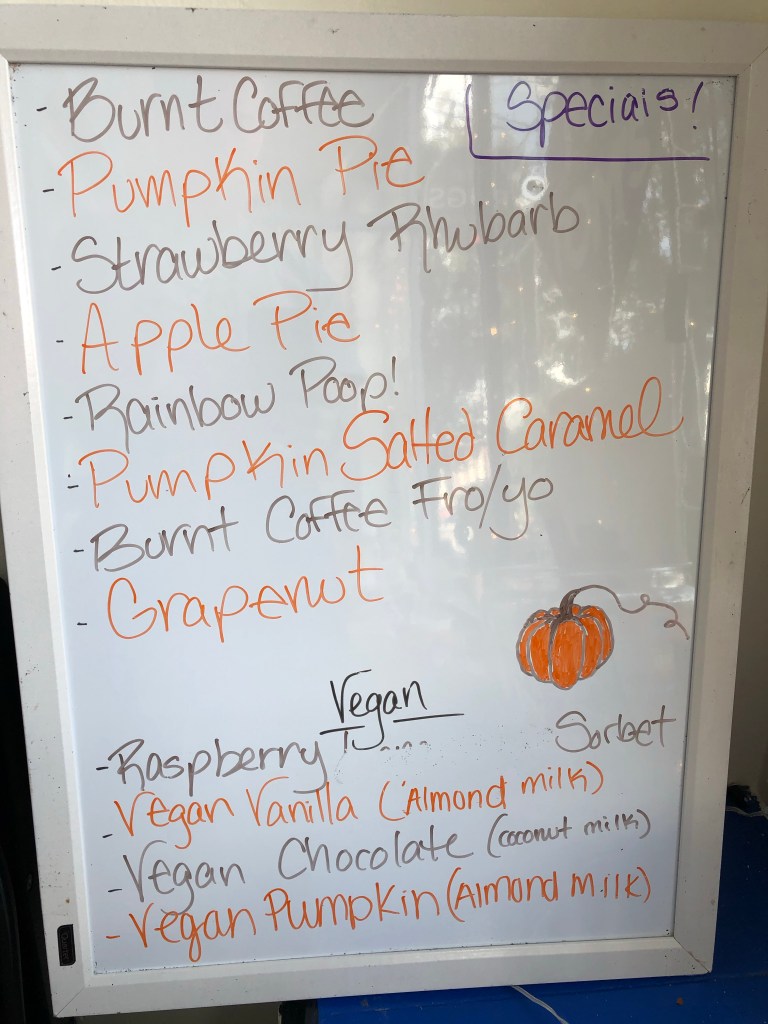 Specials!
- Burnt Coffee
- Pumpkin Pie
- Strawberry Rhubarb
- Apple Pie
- Rainbow Poop!
- Pumpkin Salted Caramel
- Burnt Coffee Fro/yo
- Grapenut
Vegan
- Raspberry Sorbet
- Vegan Vanilla (Almond milk)
- Vegan Chocolate (coconut milk)
- Vegan Pumpkin (Almond Milk)